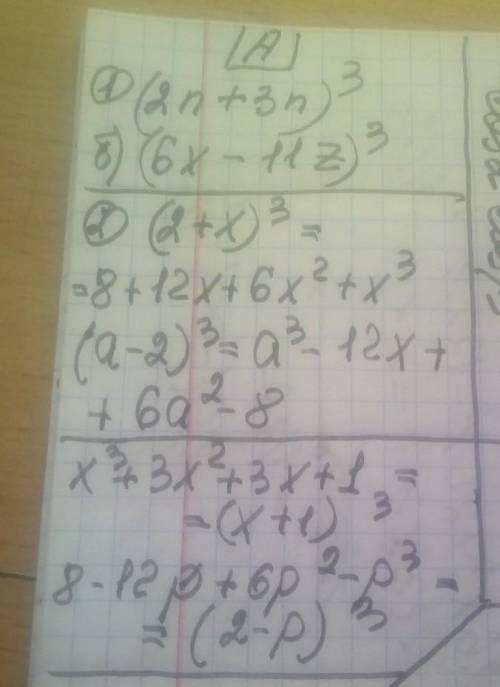 [A]
① (2n+3n)³
б) (6x - 11z)³
② (2+x)³ =
=8+12x+6x²+x³
(a-2)³=a³- 12x+
+ 6a²- 8
x³+3x²+3x+1 =
=(x+1)³
8-12p+6p²-p³ =
= (2-p)³